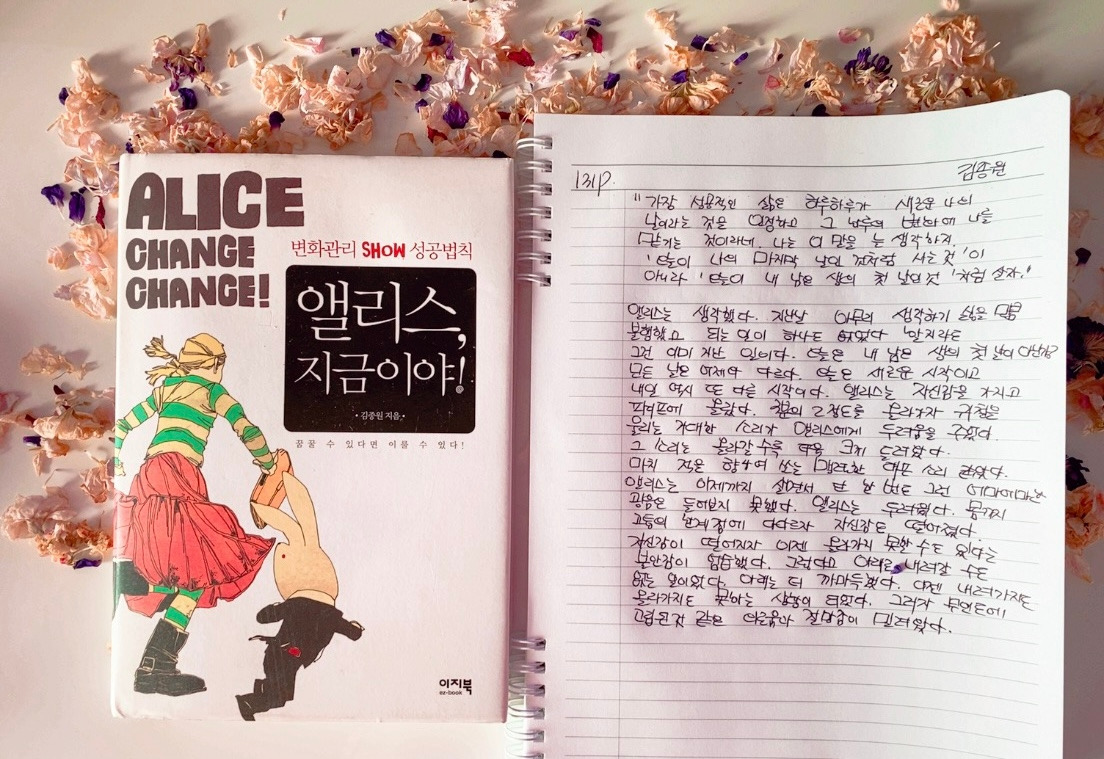 ALICE
CHANGE
CHANGE!
변화관리 SHOW 성공법칙
앨리스,
지금이야!
• 김종원 지음 •
꿈꿀 수 있다면 이룰 수 있다!
이지북
ez-book
131p.
김종원
"가장 성공적인 삶은 하루하루가 새로운 나의
날이라는 것을 인정하고 그 하루의 변화에 나를
맡기는 것이라네. 나는 이 말을 늘 생각하지.
'오늘이 나의 마지막 날인 것처럼 사는 것'이
아니라 '오늘이 내 남은 생의 첫 날인 것'처럼 살자."
앨리스는 생각했다. 지난날 아무리 생각하기 싫을 만큼
불행했고 되는 일이 하나도 없었다 할지라도
그건 이미 지난 일이다. 오늘은 내 남은 생의 첫 날이 아닌가?
모든 날은 어제와 다르다. 오늘은 새로운 시작이고
내일 역시 또 다른 시작이다. 앨리스는 자신감을 가지고
올랐다. 정도를 올라가자 귀청을
울리는 거대한 소리가 앨리스에게 두려움을 주었다.
그 소리는 올라갈수록 더욱 크게 들려왔다.
마치 적을 향하여 쏘는 맹렬한 대포 소리 같았다.
앨리스는 이제까지 살면서 단 한 번도 그런 어마어마한
굉음은 들어보지 못했다. 앨리스는 두려웠다. 몸까지
고통의 한계점에 다다르자 자신감도 떨어졌다.
자신감이 떨어지자 이젠 올라가지 못할 수도 있다는
불안감이 엄습했다. 그렇다고 아래로 내려갈 수도
없는 일이었다. 아래는 더 까마득했다. 이젠 내려가지도
올라가지도 못하는 상황이 되었다. 그러자 무인도에
고립된 것 같은 외로움과 절망감이 밀려왔다.